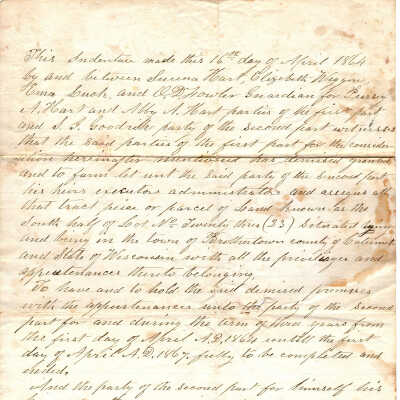 This Indenture made this 16th day of April 1864
by and between Surena Hart, Elizabeth Wiggins
Ema Buck and O. D. Fowler Guardian for
A. Hart and Abby A. Hart parties of the first part
and S. I. Goodrich party of the second part witnesses
that the said parties of the first part for the consider
ation hereinafter mentioned has demised granted
and to farm let unt the said party of the second part
his heirs executors administrators and assigns all
that tract piece or parcel of Land Known as the
South half of Lot No Twenty three (23) Situated
and being in the town of Brothertown county of Calumet
and State of Wisconsin with all the privileges and
appurtenances thereto belonging.
To have and to hold the said demised premises
with the appurtenances unto the party of the second
part for and during the term of three years from
the first day of April A.D. 1864 untill the first
day of April A.D. 1867. fully to be completed and
ended.
And the party of the second part for himself his